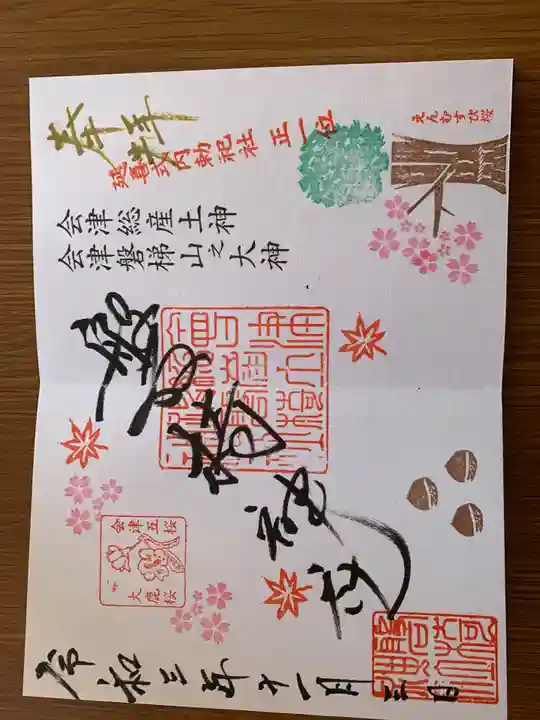 奉拝
延喜式内勅祀社 正一位
えんむすび桜
会津総産土神
会津磐梯山之大神
磐椅神社
会津五桜
大鹿桜
令和三年十一月三日